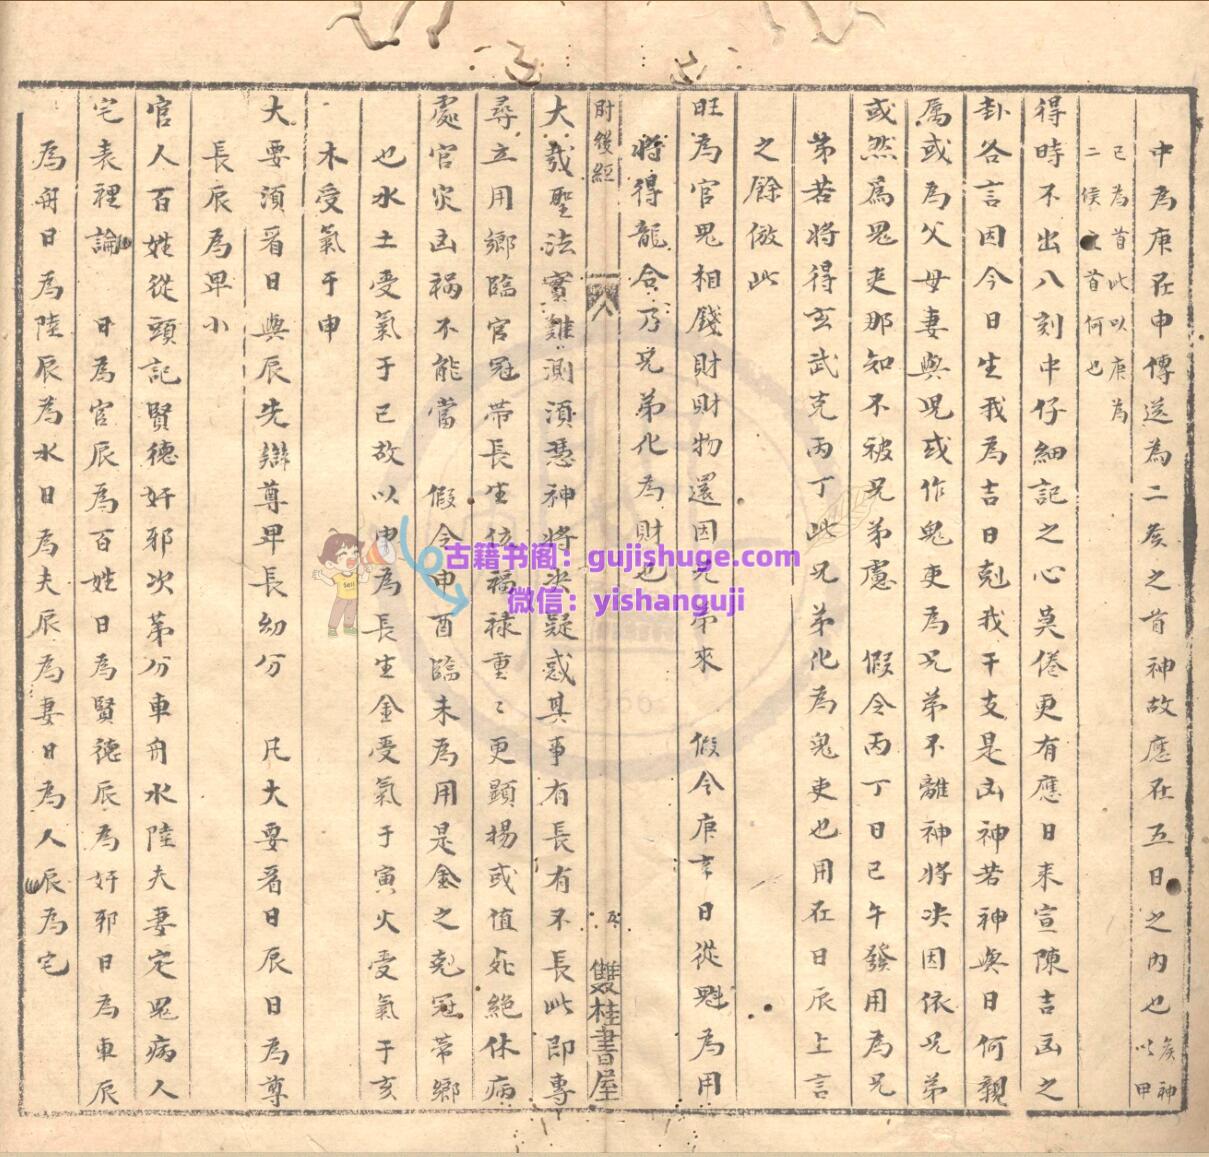 中為庚在申傳送為二矦之首神故應在五日之內也矦神以甲
己為首此以庚為
二候之首何也
得時不出八刻中仔細記之心莫倦更有應日来宣陳吉凶之
卦各言因今日生我為吉日剋我干支是凶神若神與日何親
属或為父母妻與児或作鬼吏為兄弟不離神將决因依兄弟
或然為鬼吏那知不被兄弟慮 假令丙丁日巳午發用為兄
苐若將得玄武克丙丁此兄弟化為鬼吏也用在日辰上言
之餘倣此
旺為官鬼相錢財財物還因兄弟來 假令庚辛日從魁為用
將得龍合乃兄弟化為財也
肘後經
八
雙桂書屋
大㢤聖法實難測湏憑神將决疑惑其事有長有不長此即專
尋立用鄉臨官冠帶長生位福祿重〻更顕揚或值死絕休病
處官灾凶禍不能當 假令申酉臨未為用是金之剋冠帶鄉
也水土受氣于巳故以申為長生金受氣于寅火受氣于亥
木受氣于申
大要湏㸔日與辰先辯尊卑長幼分 凡大要㸔日辰日為尊
長辰為卑小
官人百姓從頭記賢德奸邪次苐分車舟水陸夫妻定鬼病人
宅表裡論 日為官辰為百姓日為賢德辰為奸邪日為車辰
為舟日為陸辰為水日為夫辰為妻日為人辰為宅
古籍书阁：gujishuge.com
微信：yishanguji